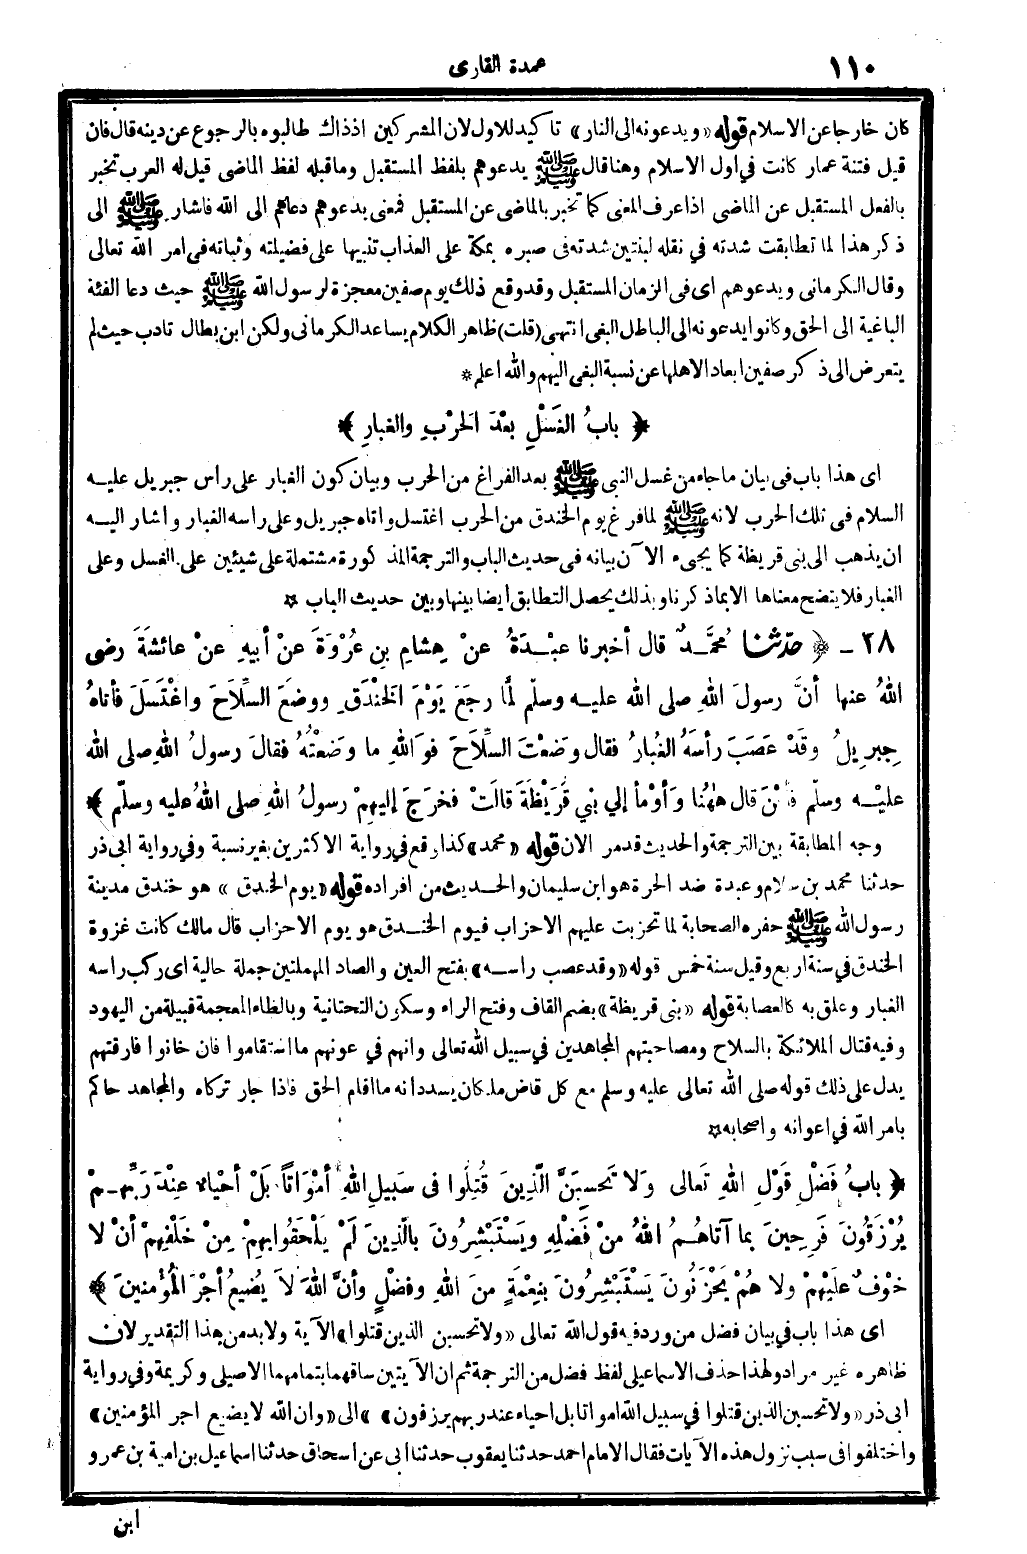 ١١٠ عمدة القارى
كان خارجا عن الاسلام قوله «ويدعونه الى النار» تاكيد للاول لان المشركين اذ ذاك طالبوه بالرجوع عن دينه قال فان
قيل فتنة عمار كانت في اول الاسلام وهنا قال ﷺ يدعوهم بلفظ المستقبل وما قبله لفظ الماضى قيل له العرب تخبر
بالفعل المستقبل عن الماضى اذا عرف المعنى كما تخبر بالماضى عن المستقبل فمعنى يدعوهم دعاهم الى الله فاشار ﷺ الى
ذكر هذا لما تطابقت شدته في نقله لبنتين شدته فى صبره بمكة على العذاب تنبيها على فضيلته وثباته فى امر الله تعالى
وقال الكرمانى ويدعوهم اى فى الزمان المستقبل وقد وقع ذلك يوم صفين معجزة لرسول الله ﷺ حيث دعا الفئة
الباغية الى الحق وكانوا يدعونه الى الباطل البغى انتهى (قلت) ظاهر الكلام يساعد الكرمانى ولكن ابن بطال تادب حيث لم
يتعرض الى ذكر صفين ابعادا لاهلها عن نسبة البغى اليهم والله اعلم *
﴿ بابُ الغَسْلِ بعْدَ الحَرْبِ والغبارِ ﴾
اى هذا باب فى بيان ما جاء من غسل النبى ﷺ بعد الفراغ من الحرب وبيان كون الغبار على راس جبريل عليه
السلام فى تلك الحرب لانه ﷺ لما فرغ يوم الخندق من الحرب اغتسل واتاه جبريل وعلى راسه الغبار واشار اليه
ان يذهب الى بنى قريظة كما يجىء الآن بيانه فى حديث الباب والترجمة المذكورة مشتملة على شيئين على الغسل وعلى
الغبار فلا يتضح معناها الا بماذكرنا وبذلك يحصل التطابق ايضا بينها وبين حديث الباب ☆
٢٨ ـ ﴿ حدّثنا مُحمَّدٌ قال أخبرنا عبْدَةُ عنْ هِشامِ بنِ عُرْوَةَ عنْ أبيهِ عنْ عائشَةَ رضى
اللهُ عنها أنَّ رسولَ اللهِ صلى الله عليه وسلّم لمَّا رجَعَ يَوْمَ الخَنْدَقِ ووضَعَ السِّلاَحَ واغْتَسَلَ فأتاهُ
جِبرِيلُ وقَدْ عَصَبَ رأسَهُ الغُبارُ فقال وضَعْتَ السِّلاَحَ فوَاللهِ ما وضَعْتُهُ فقالَ رسولُ اللهِ صلى الله
عليْه وسلّم فأيْنَ قال هٰهُنا وأوْمأ إلي بني قُرَيْظَةَ قالَتْ فخرَجَ إليهِمْ رسولُ اللهِ صلى اللهُ عليه وسلّم ﴾
وجه المطابقة بين الترجمة والحديث قد مر الان قوله «محمد» كذا وقع في رواية الاكثرين بغير نسبة وفي رواية ابى ذر
حدثنا محمد بن سلام وعبدة ضد الحرة هو ابن سليمان والحديث من افراده قوله «يوم الخندق» هو خندق مدينة
رسول الله ﷺ حفره الصحابة لما تحزبت عليهم الاحزاب فيوم الخندق هو يوم الاحزاب قال مالك كانت غزوة
الخندق في سنة اربع وقيل سنة خمس قوله «وقد عصب راسه» بفتح العين والصاد المهملتين جملة حالية اى ركب راسه
الغبار وعلق به كالعصابة قوله «بنى قريظة» بضم القاف وفتح الراء وسكون التحتانية وبالظاء المعجمة قبيلة من اليهود
وفيه قتال الملائكة بالسلاح ومصاحبتهم المجاهدين في سبيل الله تعالى وانهم في عونهم ما استقاموا فان خانوا فارقتهم
يدل على ذلك قوله صلى الله تعالى عليه وسلم مع كل قاض ملكان يسددانه ما اقام الحق فاذا جار تركاه والمجاهد حاكم
بامر الله في اعوانه واصحابه ☆
﴿ بابُ فَضْلِ قَوْلِ اللهِ تَعالى وَلا تَحسِبَنَّ الَّذِينَ قُتِلُوا فى سَبِيلِ اللهِ أمْوَاتاً بَلْ أحْياء عِنْدَ رَبِّهِمْ
يُرْزَقُونَ فَرِحِينَ بما آتاهُمُ اللهُ مِنْ فَضْلِهِ ويَسْتَبْشِرُونَ بالَّذِينَ لَمْ يَلْحَقُوا بِهِمْ مِنْ خَلْفِهِمْ أنْ لا
خوْفٌ عَليْهِمْ ولا هُمْ يَحْزَنُونَ يَسْتَبْشِرُونَ بِنِعْمَةٍ منَ اللهِ وفضْلٍ وأنَّ اللهَ لاَ يُضِيعُ أجْرَ المُؤْمنِينَ ﴾
اى هذا باب في بيان فضل من ورد فيه قول الله تعالى «ولا تحسبن الذين قتلوا» الآية ولا بد من هذا التقدير لان
ظاهره غير مراد ولهذا حذف الاسماعيلى لفظ فضل من الترجمة ثم ان الآيتين ساقهما بتمامهما الاصيلى وكريمة وفي رواية
ابى ذر «ولا تحسبن الذين قتلوا في سبيل الله امواتا بل احياء عند ربهم يرزقون» الى «وان الله لا يضيع اجر المؤمنين»
واختلفوا فى سبب نزول هذه الآيات فقال الامام احمد حدثنا يعقوب حدثنا ابى عن اسحاق حدثنا اسماعيل بن امية بن عمرو
ابن